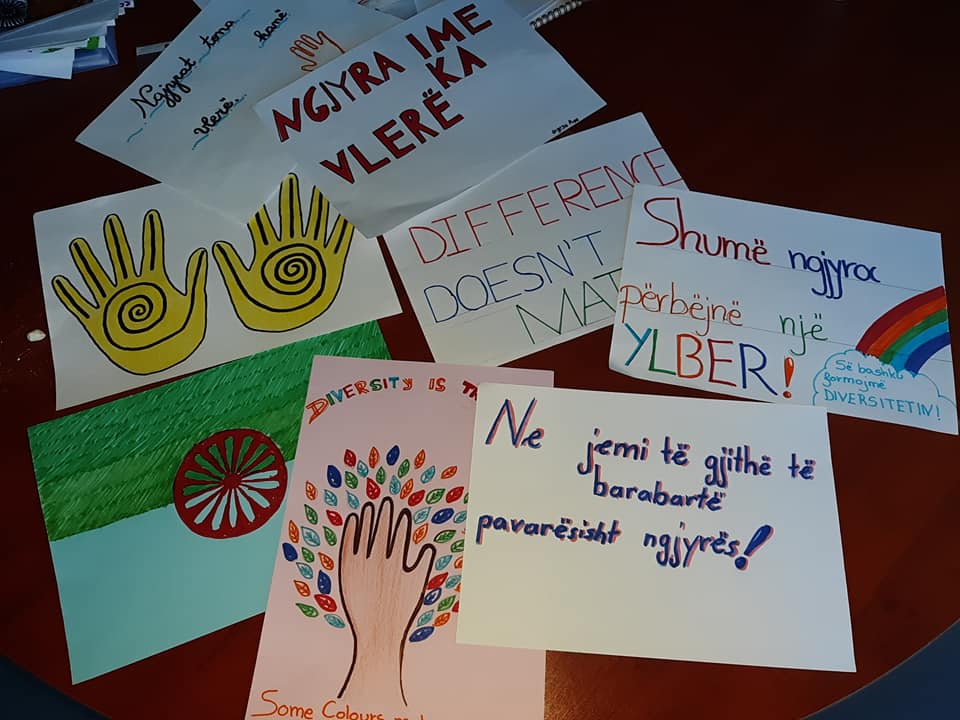 Ngjyrat tona
kanë
vlerë
NGJYRA IME
KA
VLERË
DIFFERENCE
DOESN'T
Shumë ngjyra
përbëjnë një
YLBER!
Së bashku
formojmë
DIVERSITETIN!
DIVERSITY IS
Ne jemi të gjithë të
barabartë
pavarësisht ngjyrës!
Some Colours